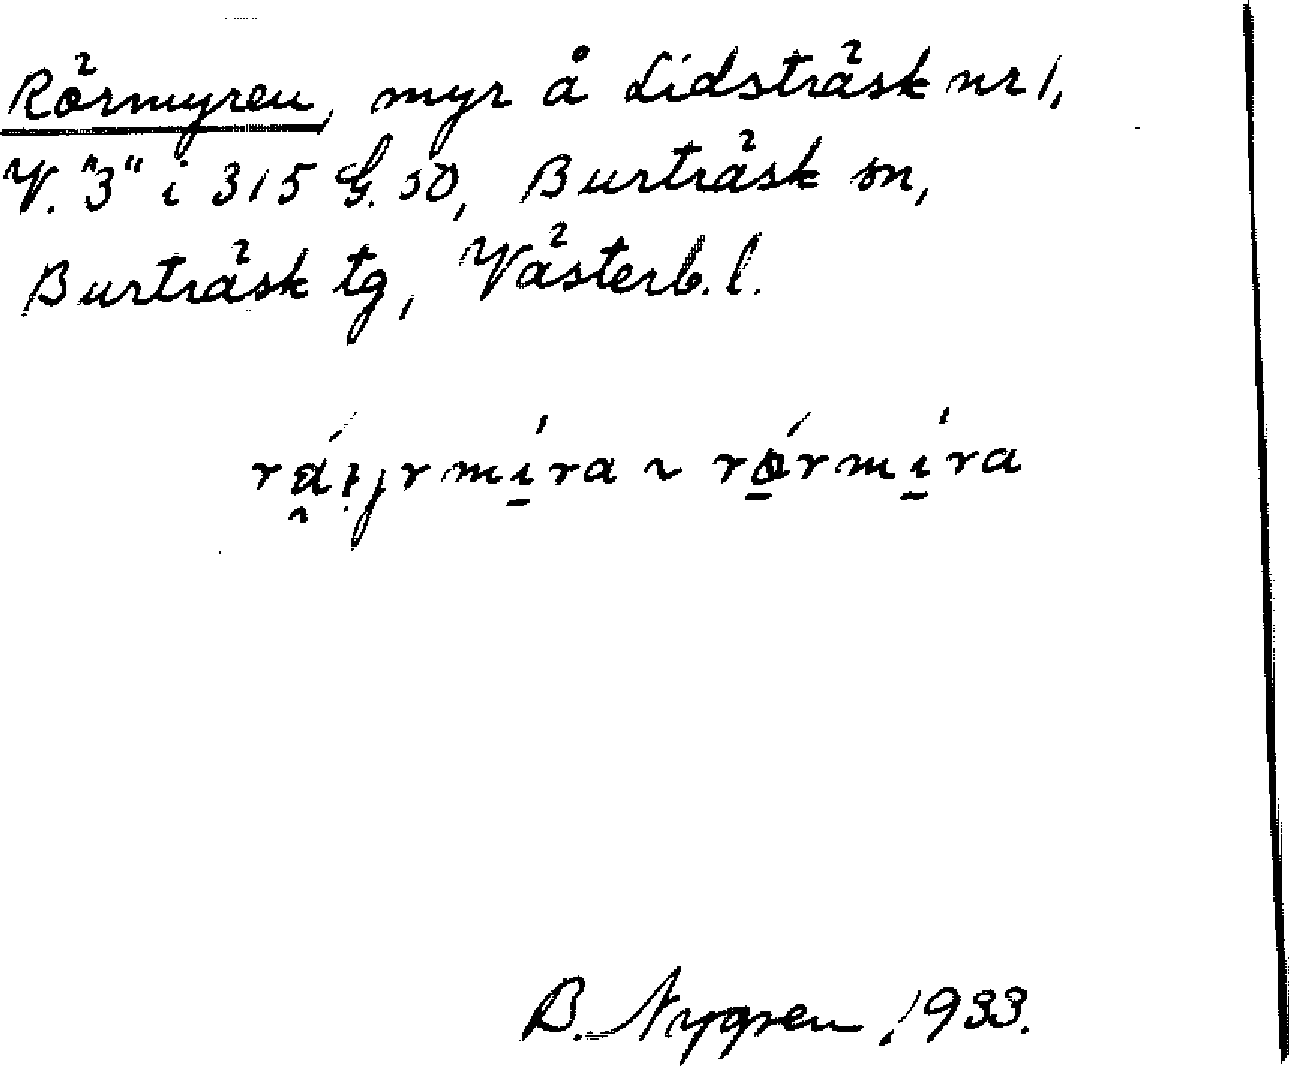 Rörmyren, myr å Lidsträsk nr 1,
V. "3" i 315 G. SO, Burträsk sn,
Burträsk tg, Västerb. l.
~ rǿrmí̱ra
B. Nygren, 1933.